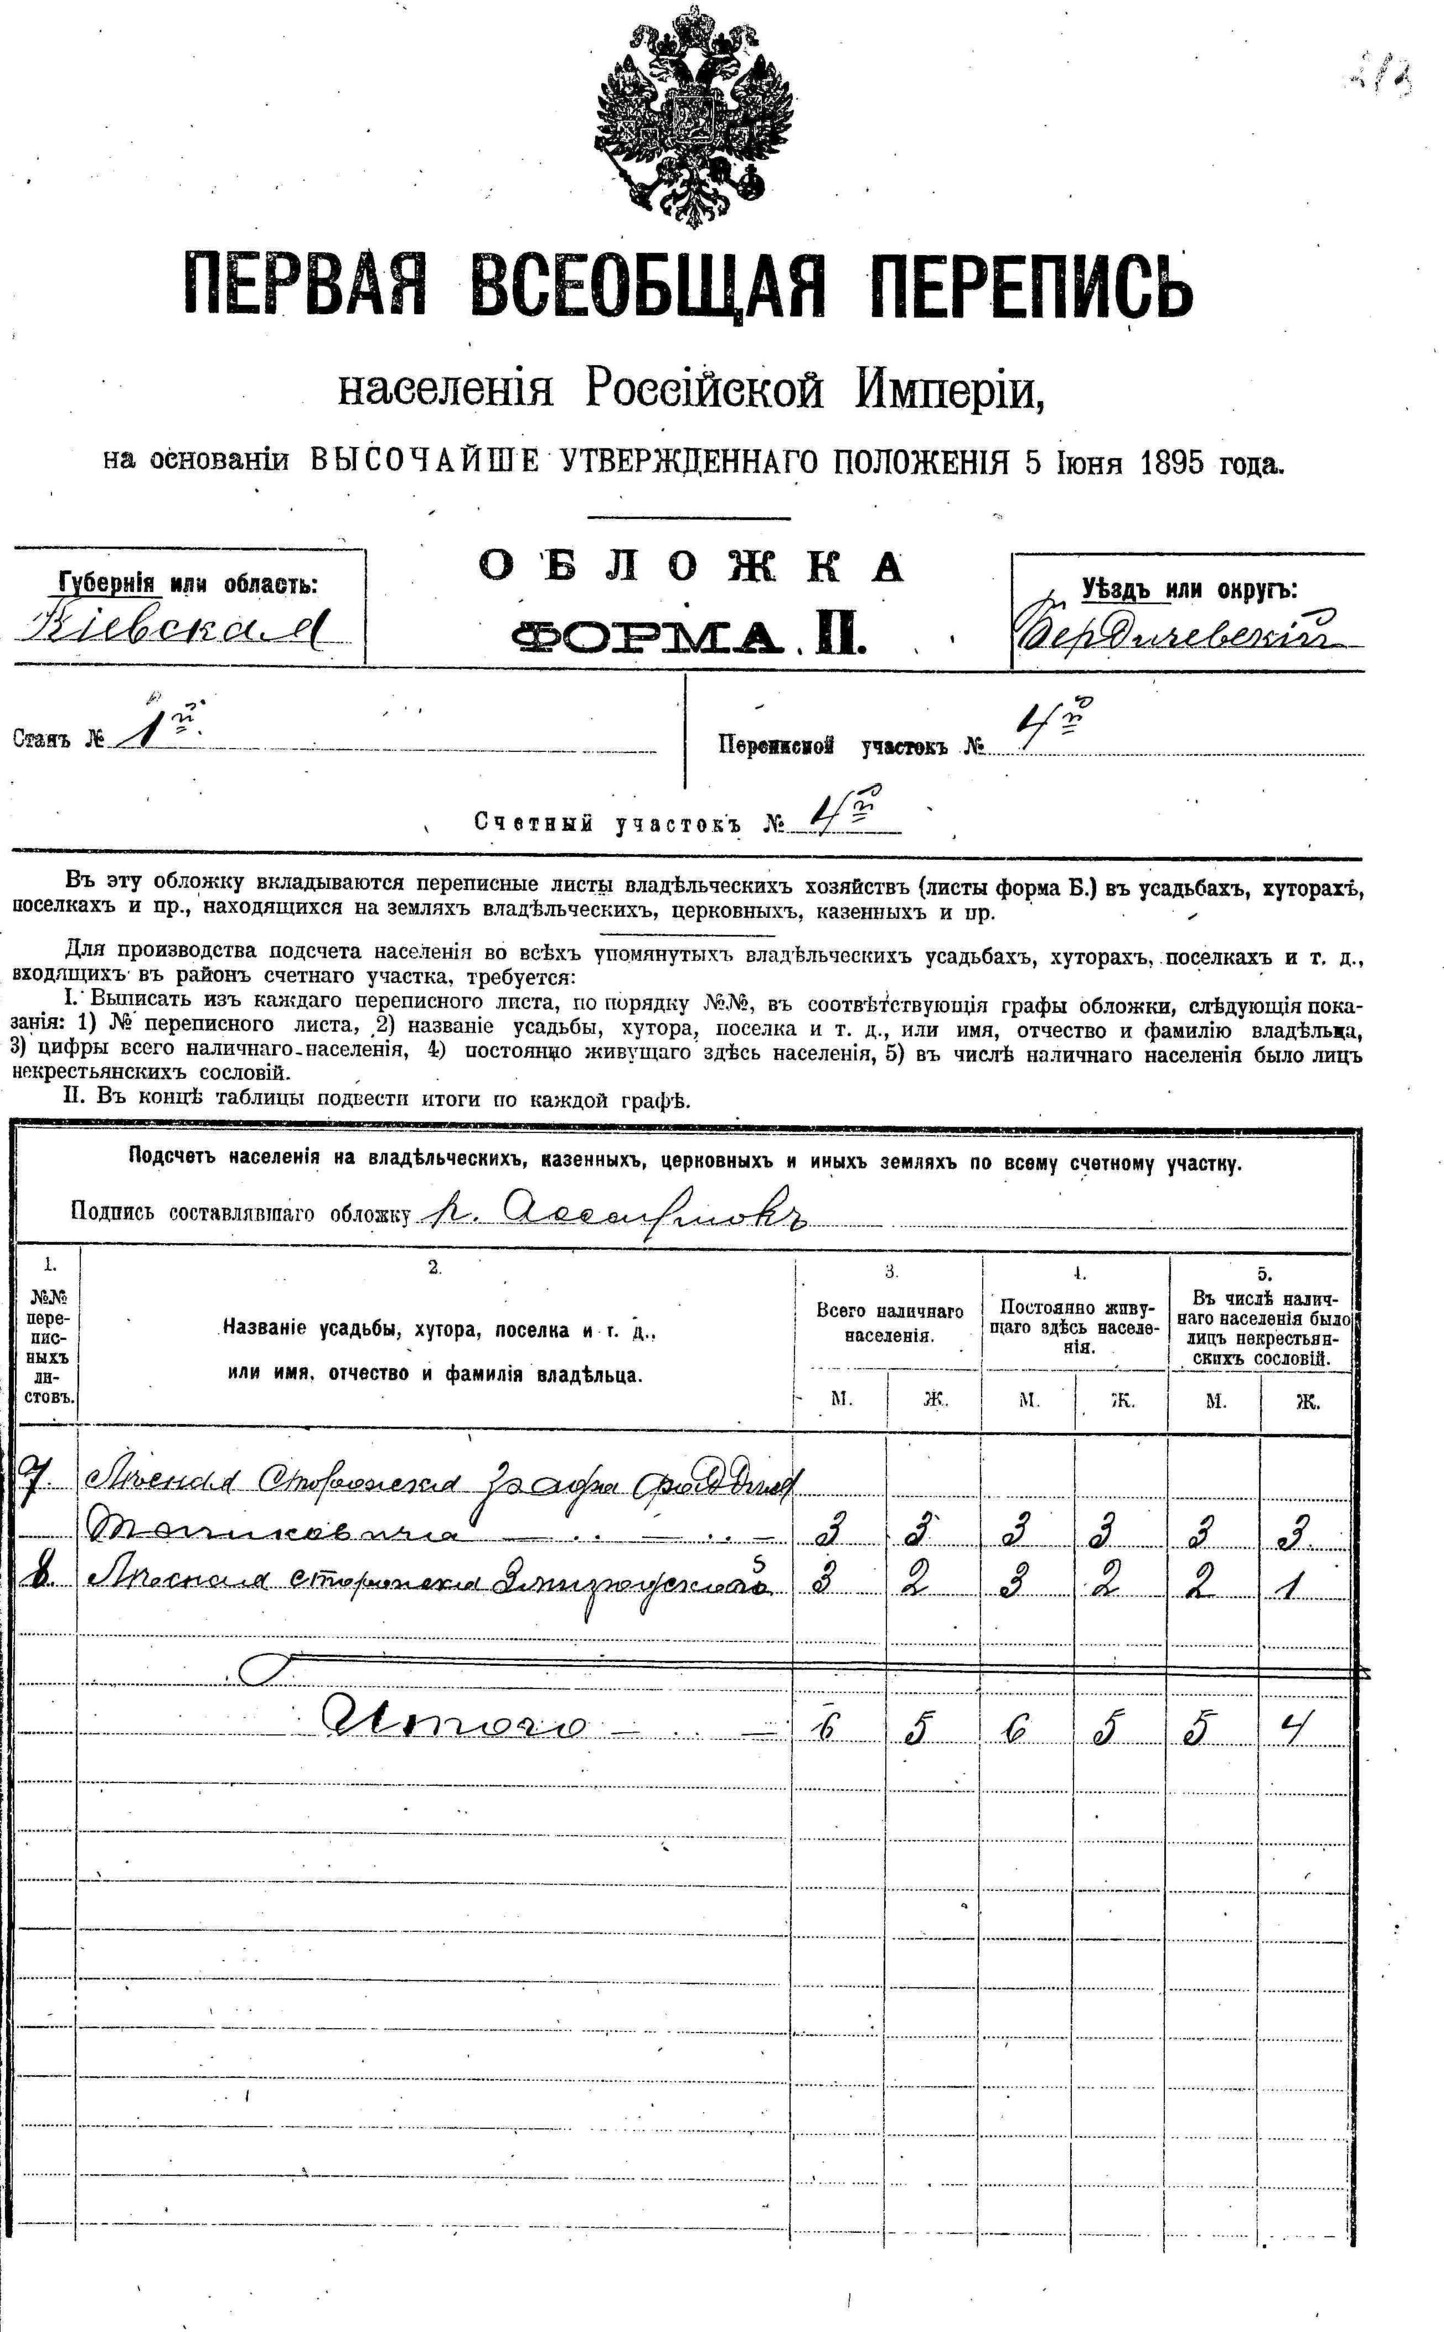 213
ПЕРВАЯ ВСЕОБЩАЯ ПЕРЕПИСЬ
населенія Россійской Имперіи,
на основаніи ВЫСОЧАЙШЕ УТВЕРЖДЕННАГО ПОЛОЖЕНІЯ 5 Іюня 1895 года.
ОБЛОЖКА
ФОРМА II.
Губернія или область:
Кіевская
Уѣздъ или округъ:
Бердичевскій
Станъ № 1й
Переписной участокъ № 4й
Счетный участокъ № 4й
Въ эту обложку вкладываются переписные листы владѣльческихъ хозяйствъ (листы форма Б.) въ усадьбахъ, хуторахъ,
поселкахъ и пр., находящихся на земляхъ владѣльческихъ, церковныхъ, казенныхъ и пр.
Для производства подсчета населенія во всѣхъ упомянутыхъ владѣльческихъ усадьбахъ, хуторахъ, поселкахъ и т. д.,
входящихъ въ районъ счетнаго участка, требуется:
I. Выписать изъ каждаго переписного листа, по порядку №№, въ соотвѣтствующія графы обложки, слѣдующія пока-
занія: 1) № переписного листа, 2) названіе усадьбы, хутора, поселка и т. д., или имя, отчество и фамилію владѣльца,
3) цифры всего наличнаго населенія, 4) постоянно живущаго здѣсь населенія, 5) въ числѣ наличнаго населенія было лицъ
некрестьянскихъ сословій.
II. Въ концѣ таблицы подвести итоги по каждой графѣ.
Подсчетъ населенія на владѣльческихъ, казенныхъ, церковныхъ и иныхъ земляхъ по всему счетному участку.
Подпись составлявшаго обложку
1. 2. 3. 4. 5.
№№
пере-
пис-
ныхъ
ли-
стовъ.
Названіе усадьбы, хутора, поселка и т. д.,
или имя, отчество и фамилія владѣльца.
Всего наличнаго
населенія.
Постоянно живу-
щаго здѣсь населе-
нія.
Въ числѣ налич-
наго населенія было
лицъ некрестьян-
скихъ сословій.
М. Ж. М. Ж. М. Ж.
7. Лѣсная Сторожка Графа Фаддея
3 3 3 3 3 3
8. Лѣсная сторожка 3 2 3 2 2 1
Итого 6 5 6 5 5 4